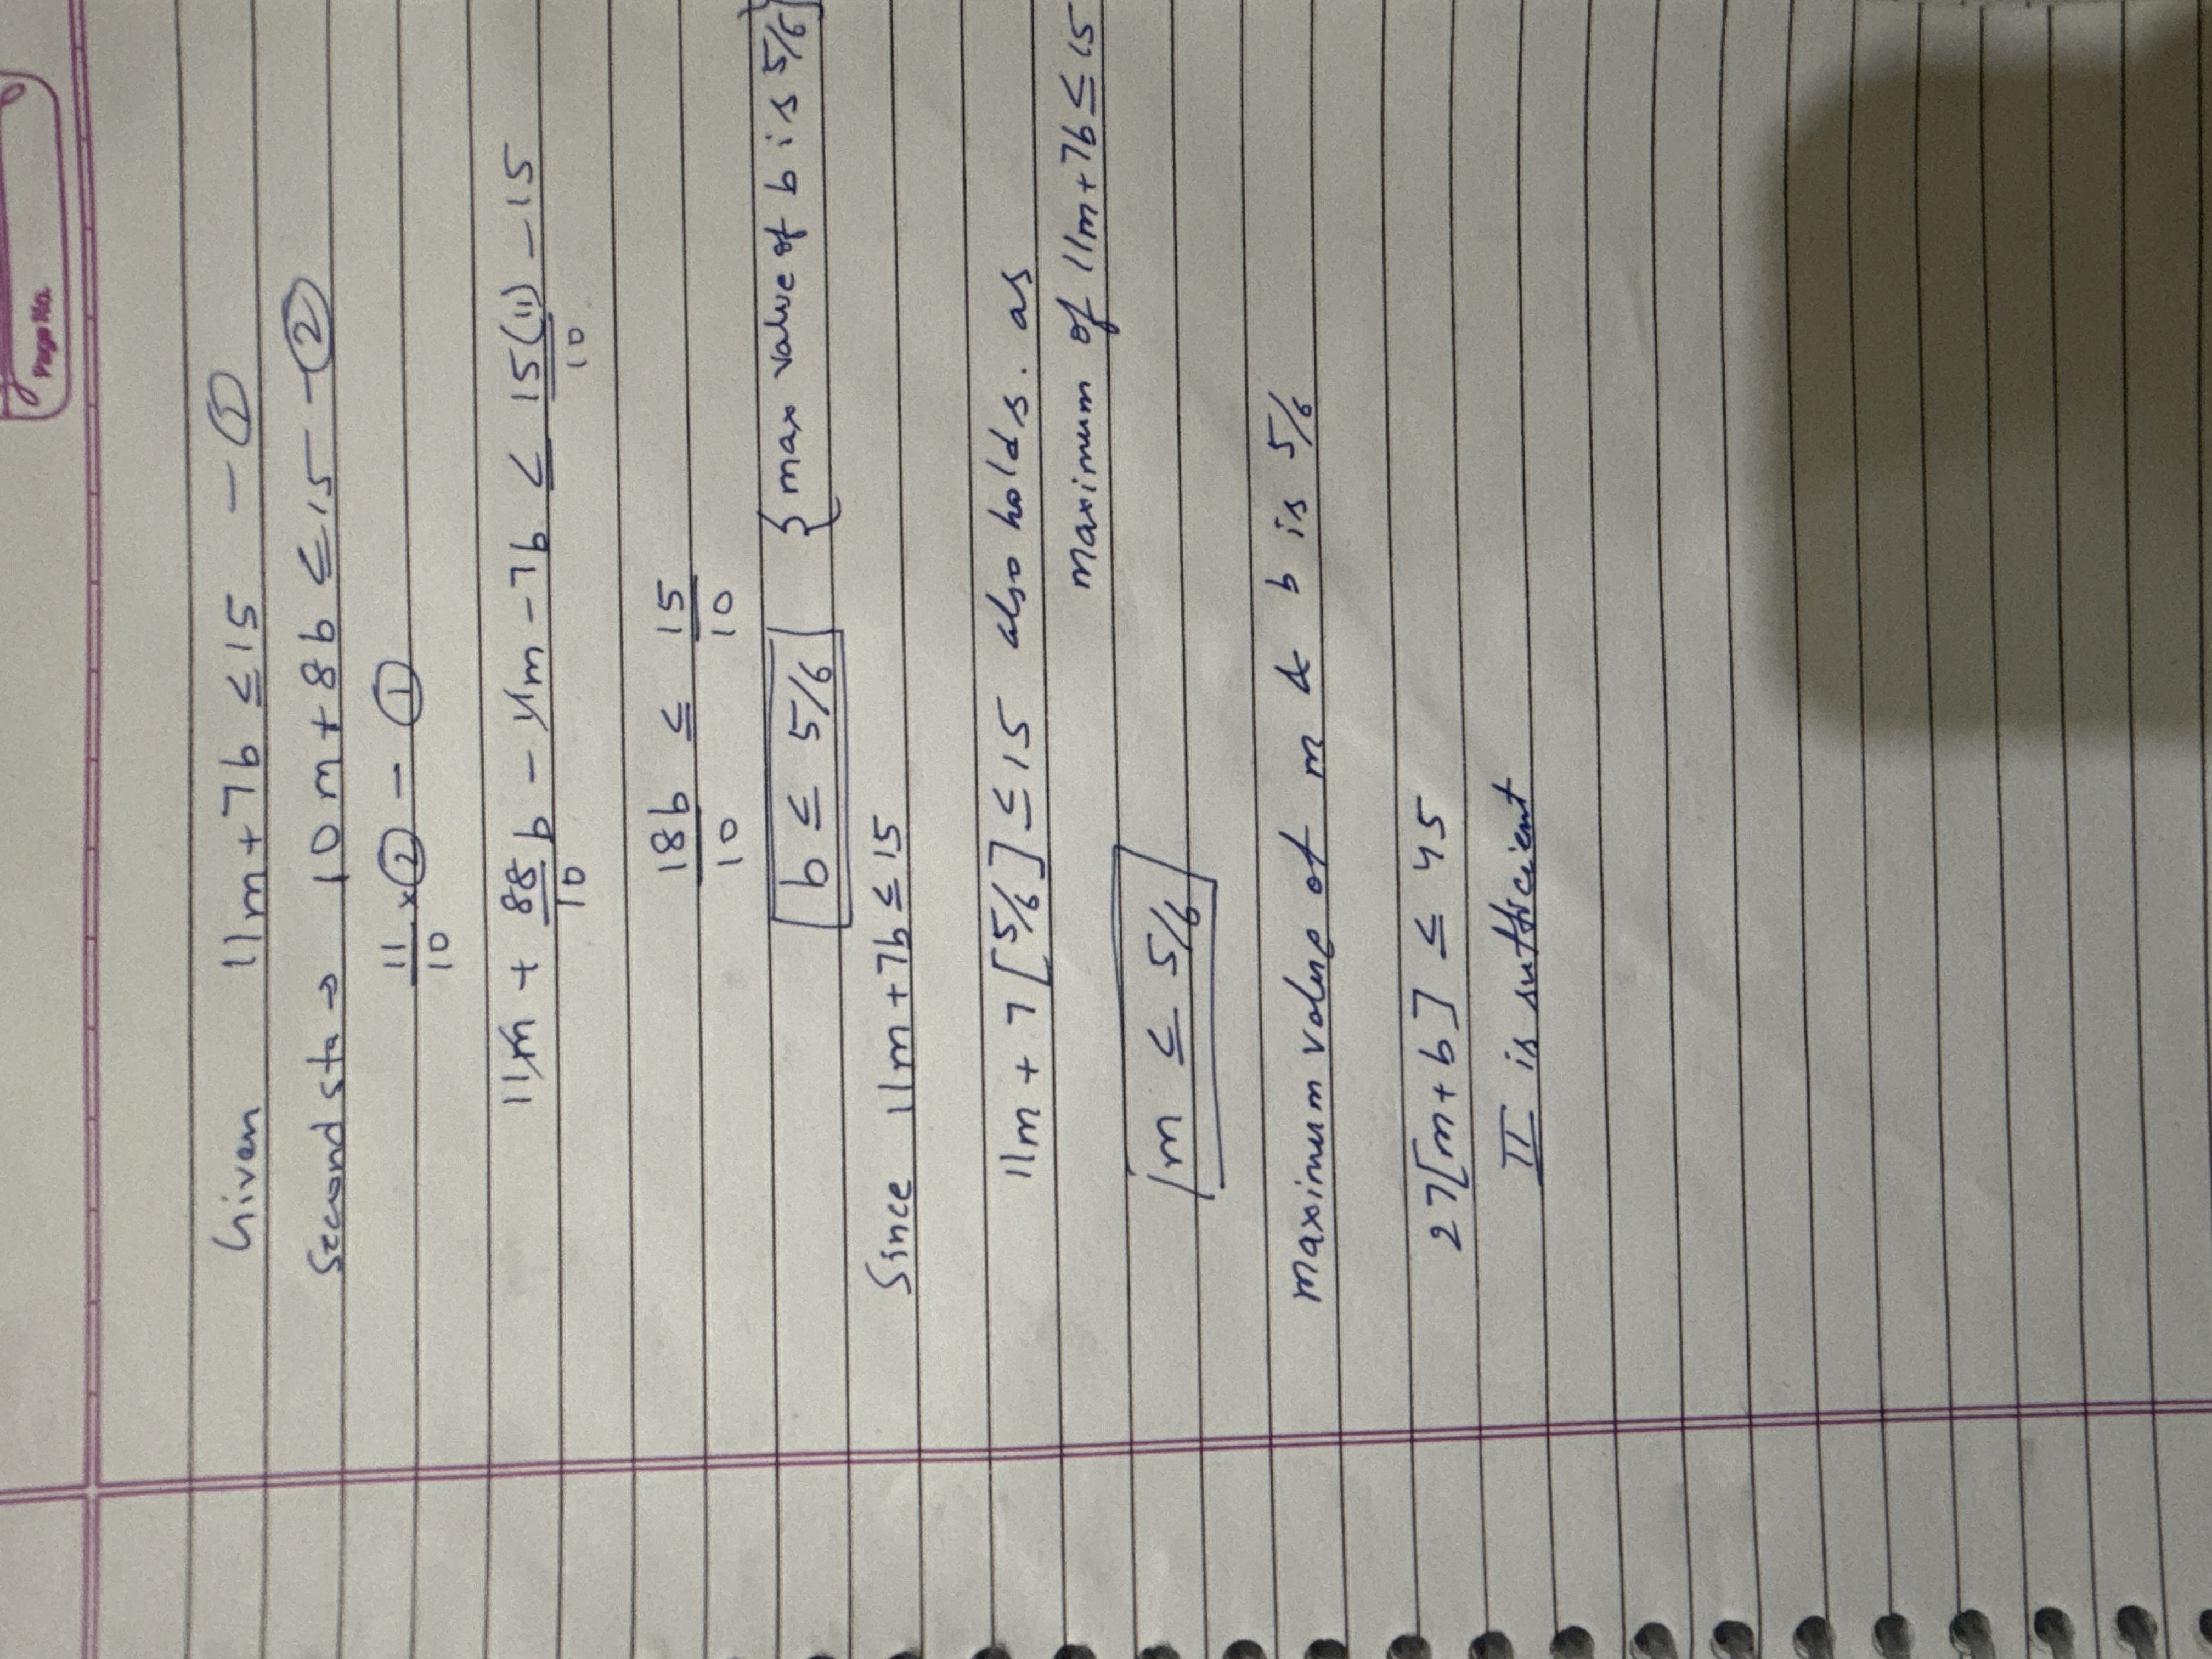 Page No.
Given 11m + 7b ≤ 15 — ①
Second sta → 10m + 8b ≤ 15 — ②
11/10 × ② — ①
11m + 88/10 b - 11m - 7b ≤ 15(11)/10 - 15
18b/10 ≤ 15/10
b ≤ 5/6 {max value of b is 5/6}
Since 11m + 7b ≤ 15
11m + 7[5/6] ≤ 15 also holds. as
maximum of 11m + 7b ≤ 15
m ≤ 5/6
maximum value of m & b is 5/6
27[m+b] ≤ 45
II is sufficient